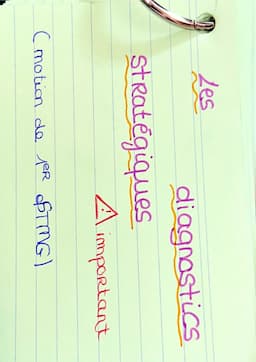 Les diagnostics
stratégiques
⚠ important
(motion de 1ER STMG)